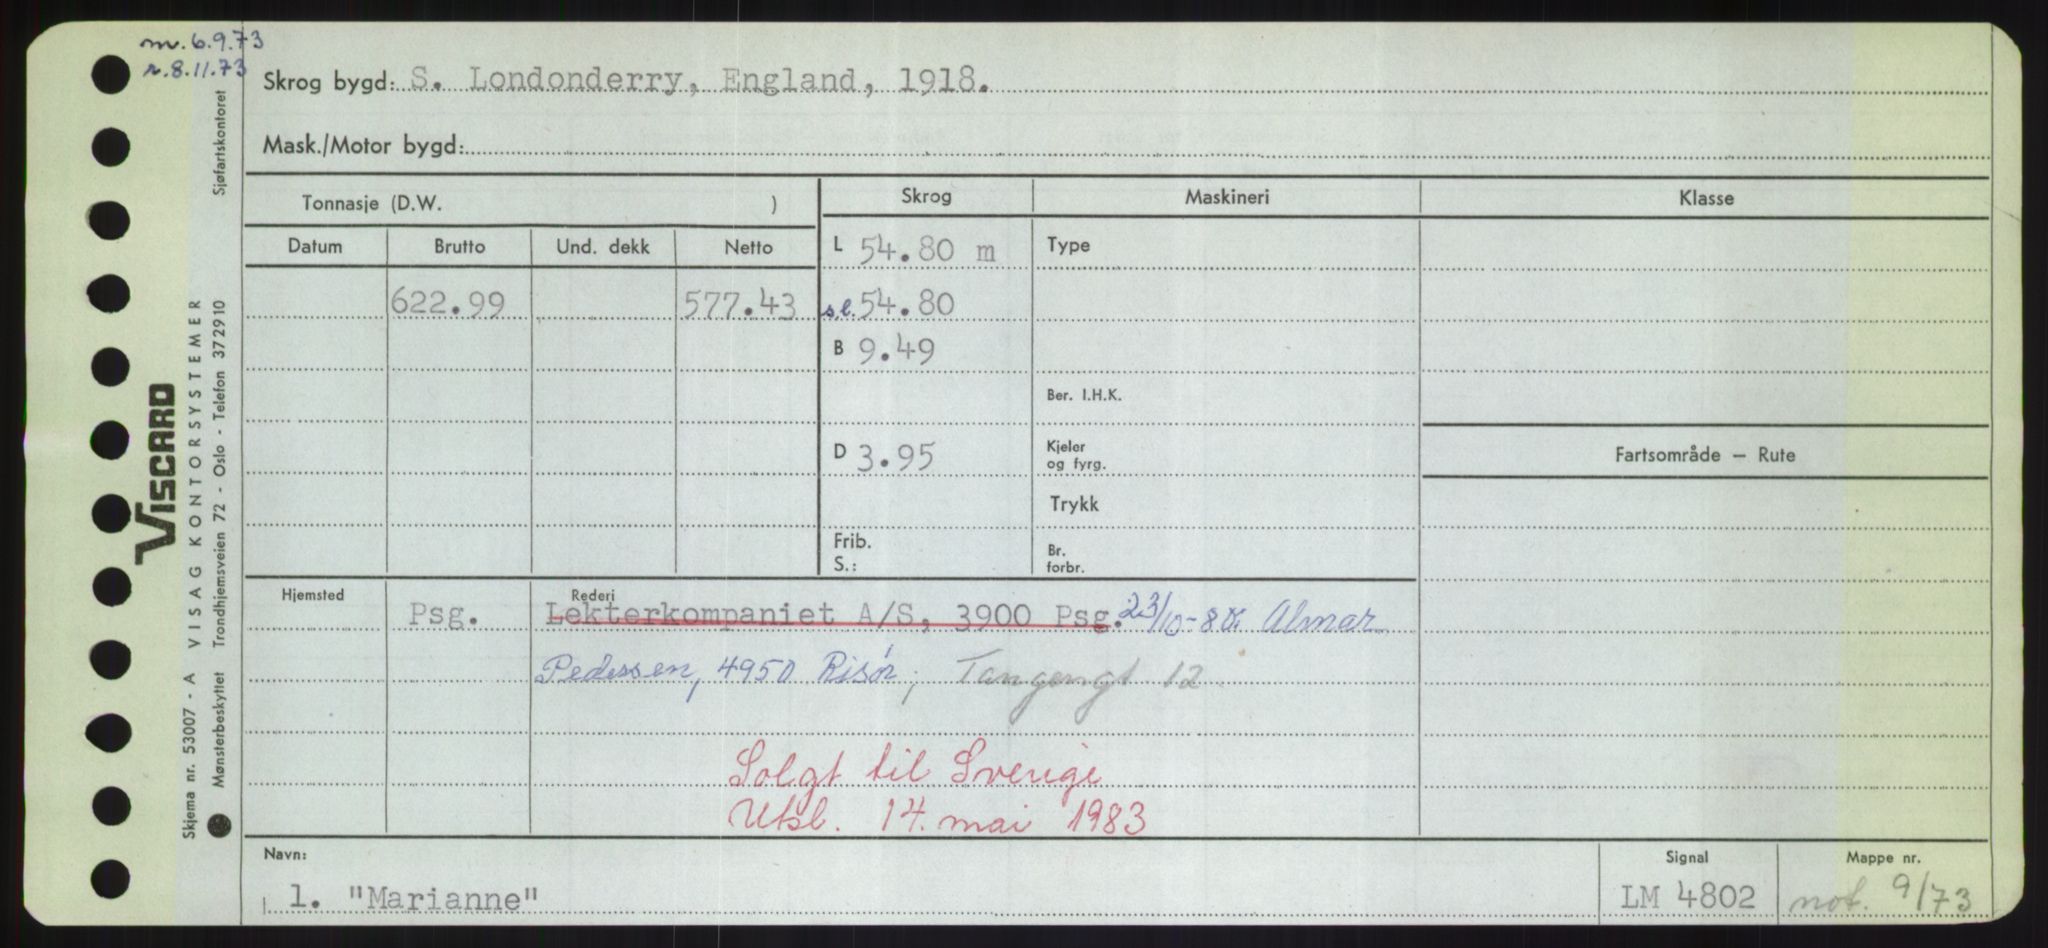 m. 6.9.73
r. 8.11.73
Skrog bygd: S. Londonderry, England, 1918.
Mask./Motor bygd:
Tonnasje (D.W. )
Skrog
Maskineri
Klasse
Datum
Brutto
Und. dekk
Netto
L 54.80 m
Type
622.99
577.43
s.l. 54.80
B 9.49
Ber. I.H.K.
D 3.95
Kjeler
og fyrg.
Fartsområde – Rute
Trykk
Frib.
S.:
Br.
forbr.
Hjemsted
Rederi
Psg.
Lekterkompaniet A/S, 3900 Psg. 23/10-80: Almar
Pedersen, 4950 Risør; Tangengt 12
Solgt til Sverige
Utsl. 14. mai 1983
Navn:
Signal
Mappe nr.
1. "Marianne"
LM 4802
not. 9/73
VISCARD
Skjema nr. 53007 - A VISAG KONTORSYSTEMER
Mønsterbeskyttet Trondhjemsveien 72 - Oslo - Telefon 372910 Sjøfartskontoret